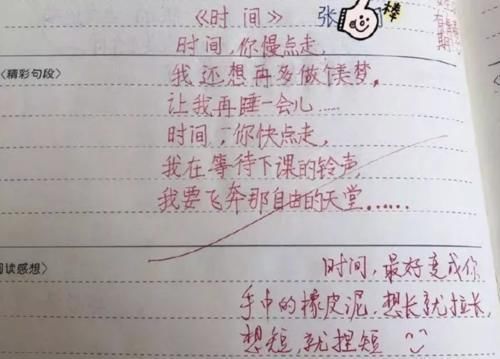 《时间》 张 棒
时间,你慢点走,
〈精彩句段〉
我还想再多做个美梦,
让我再睡一会儿……
时间,你快点走,
我在等待下课的铃声,
我要飞奔那自由的天堂……
阅读感想〉
时间,最好变成你
手中的橡皮泥,想长就拉长,
想短,就捏短